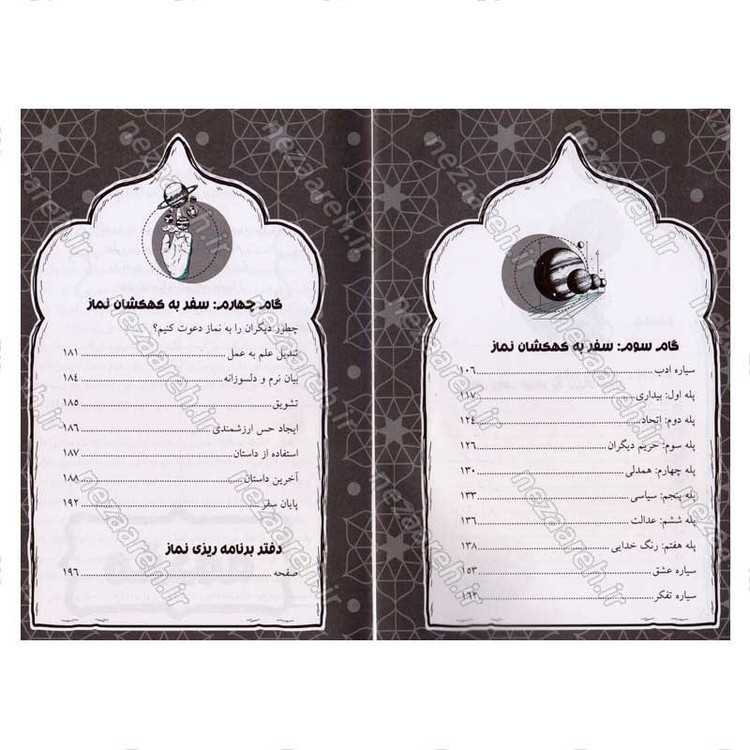 گام سوم: سفر به کهکشان نماز
سیاره ادب ۱۰۶
پله اول: بیداری ۱۱۷
پله دوم: اتحاد ۱۲۴
پله سوم: حریم دیگران ۱۲۶
پله چهارم: همدلی ۱۳۰
پله پنجم: سیاسی ۱۳۳
پله ششم: عدالت ۱۳۶
پله هفتم: رنگ خدایی ۱۳۸
سیاره عشق ۱۵۳
سیاره تفکر ۱۶۲
گام چهارم: سفر به کهکشان نماز
چطور دیگران را به نماز دعوت کنیم؟
تبدیل علم به عمل ۱۸۱
بیان نرم و دلسوزانه ۱۸۴
تشویق ۱۸۵
ایجاد حس ارزشمندی ۱۸۶
استفاده از داستان ۱۸۷
آخرین داستان ۱۸۸
پایان سفر ۱۹۲
دفتر برنامه ریزی نماز
صفحه ۱۹۶
nezaareh.ir